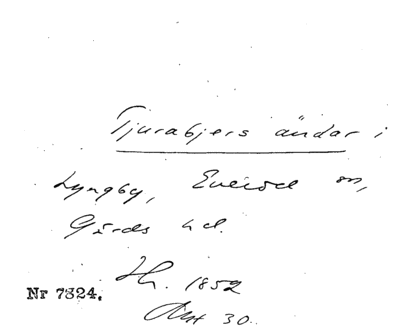 Tjurabjers ändar i
Lyngby, Everöd sn,
Gärds hd.
Nr 7324.
Hh. 1852
Akt 30